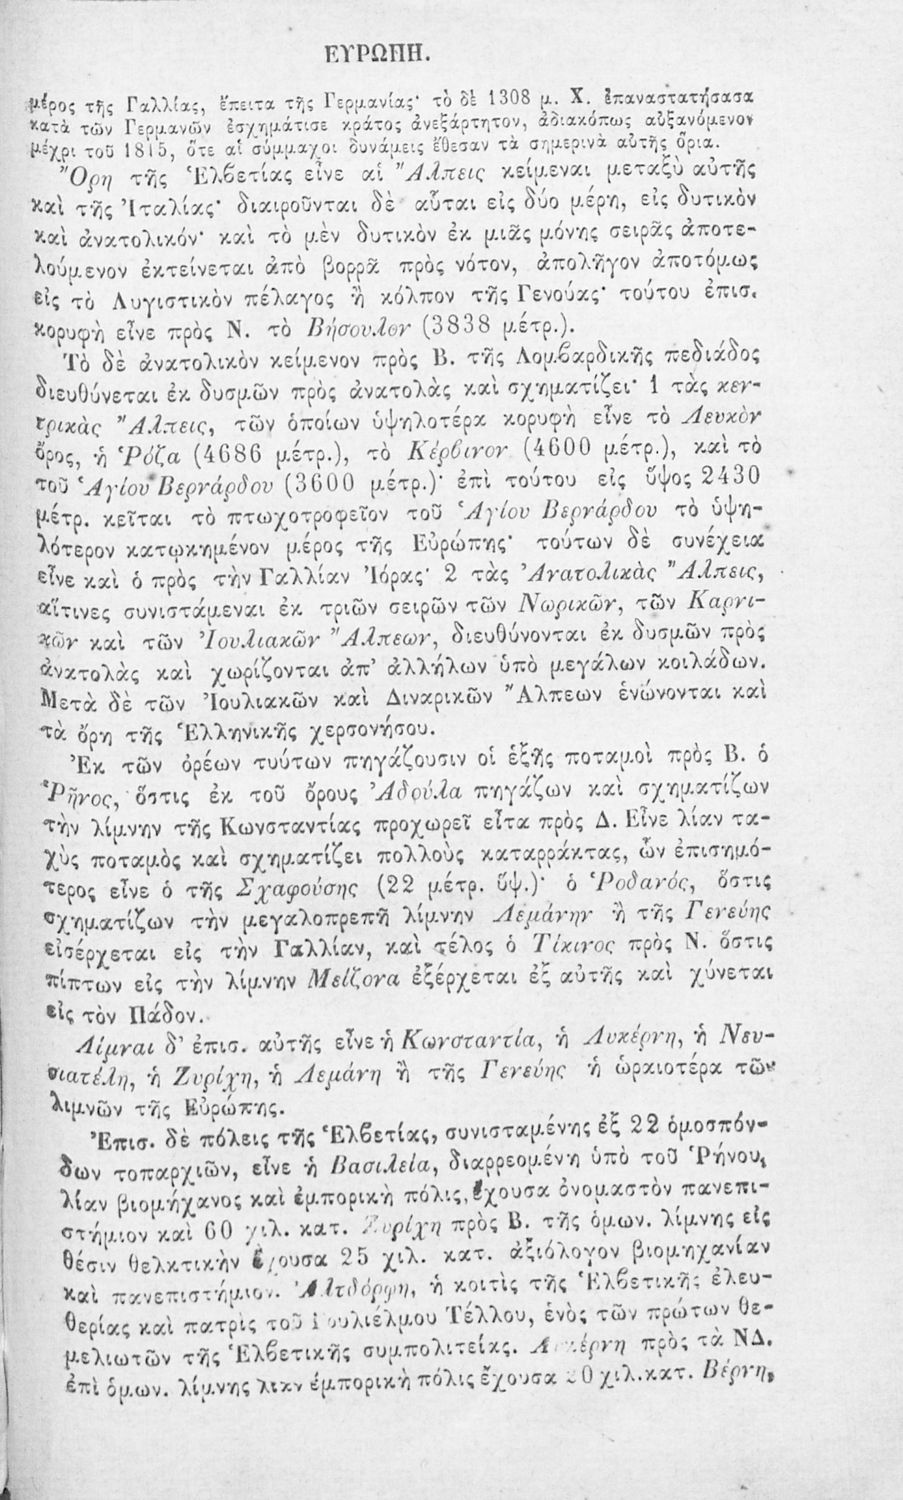 ΕΥΡΩΠΗ.
μέρος τῆς Γαλλίας, ἔπειτα τῆς Γερμανίας· τὸ δὲ 1308 μ. Χ. ἐπαναστατήσασα
κατὰ τῶν Γερμανῶν ἐσχημάτισε κράτος ἀνεξάρτητον, ἀδιακόπως αὐξανόμενον
μέχρι τοῦ 1815, ὅτε αἱ σύμμαχοι δυνάμεις ἔθεσαν τὰ σημερινὰ αὐτῆς ὅρια.
Ὄρη τῆς Ἑλβετίας εἶνε αἱ Ἄλπεις κείμεναι μεταξὺ αὐτῆς
καὶ τῆς Ἰταλίας· διαιροῦνται δὲ αὗται εἰς δύο μέρη, εἰς δυτικὸν
καὶ ἀνατολικόν· καὶ τὸ μὲν δυτικὸν ἐκ μιᾶς μόνης σειρᾶς ἀποτε-
λούμενον ἐκτείνεται ἀπὸ βορρᾶ πρὸς νότον, ἀπολῆγον ἀποτόμως
εἰς τὸ Λυγιστικὸν πέλαγος ἢ κόλπον τῆς Γενούας· τούτου ἐπισ.
κορυφὴ εἶνε πρὸς Ν. τὸ Βήσουλον (3838 μέτρ.).
Τὸ δὲ ἀνατολικὸν κείμενον πρὸς Β. τῆς Λομβαρδικῆς πεδιάδος
διευθύνεται ἐκ δυσμῶν πρὸς ἀνατολὰς καὶ σχηματίζει· 1 τὰς κεν-
τρικὰς Ἄλπεις, τῶν ὁποίων ὑψηλοτέρα κορυφὴ εἶνε τὸ Λευκὸν
ὄρος, ἡ Ῥόζα (4686 μέτρ.), τὸ Κέρβινον (4600 μέτρ.), καὶ τὸ
τοῦ Ἁγίου Βερνάρδου (3600 μέτρ.)· ἐπὶ τούτου εἰς ὕψος 2430
μέτρ. κεῖται τὸ πτωχοτροφεῖον τοῦ Ἁγίου Βερνάρδου τὸ ὑψη-
λότερον κατῳκημένον μέρος τῆς Εὐρώπης· τούτων δὲ συνέχεια
εἶνε καὶ ὁ πρὸς τὴν Γαλλίαν Ἰόρας· 2 τὰς Ἀνατολικὰς Ἄλπεις,
αἵτινες συνιστάμεναι ἐκ τριῶν σειρῶν τῶν Νωρικῶν, τῶν Καρνι-
κῶν καὶ τῶν Ἰουλιακῶν Ἄλπεων, διευθύνονται ἐκ δυσμῶν πρὸς
ἀνατολὰς καὶ χωρίζονται ἀπ' ἀλλήλων ὑπὸ μεγάλων κοιλάδων.
Μετὰ δὲ τῶν Ἰουλιακῶν καὶ Διναρικῶν Ἄλπεων ἑνώνονται καὶ
τὰ ὄρη τῆς Ἑλληνικῆς χερσονήσου.
Ἐκ τῶν ὀρέων τυύτων πηγάζουσιν οἱ ἑξῆς ποταμοὶ πρὸς Β. ὁ
Ῥῆνος, ὅστις ἐκ τοῦ ὄρους Ἀδούλα πηγάζων καὶ σχηματίζων
τὴν λίμνην τῆς Κωνσταντίας προχωρεῖ εἶτα πρὸς Δ. Εἶνε λίαν τα-
χὺς ποταμὸς καὶ σχηματίζει πολλοὺς καταρράκτας, ὧν ἐπισημό-
τερος εἶνε ὁ τῆς Σχαφούσης (22 μέτρ. ὕψ.)· ὁ Ῥοδανός, ὅστις
σχηματίζων τὴν μεγαλοπρεπῆ λίμνην Λεμάνην ἢ τῆς Γενεύης
εἰσέρχεται εἰς τὴν Γαλλίαν, καὶ τέλος ὁ Τίκινος πρὸς Ν. ὅστις
πίπτων εἰς τὴν λίμνην Μείζονα ἐξέρχεται ἐξ αὐτῆς καὶ χύνεται
εἰς τὸν Πάδον.
Λίμναι δ' ἐπισ. αὐτῆς εἶνε ἡ Κωνσταντία, ἡ Λυκέρνη, ἡ Νευ-
σιατέλη, ἡ Ζυρίχη, ἡ Λεμάνη ἢ τῆς Γενεύης ἡ ὡραιοτέρα τῶν
λιμνῶν τῆς Εὐρώπης.
Ἐπισ. δὲ πόλεις τῆς Ἑλβετίας, συνισταμένης ἐξ 22 ὁμοσπόν-
δων τοπαρχιῶν, εἶνε ἡ Βασιλεία, διαρρεομένη ὑπὸ τοῦ Ῥήνου,
λίαν βιομήχανος καὶ ἐμπορικὴ πόλις, ἔχουσα ὀνομαστὸν πανεπι-
στήμιον καὶ 60 χιλ. κατ. Ζυρίχη πρὸς Β. τῆς ὁμων. λίμνης εἰς
θέσιν θελκτικὴν ἔχουσα 25 χιλ. κατ. ἀξιόλογον βιομηχανίαν
καὶ πανεπιστήμιον. Ἀλτδόρφη, ἡ κοιτὶς τῆς Ἑλβετικῆς ἐλευ-
θερίας καὶ πατρὶς τοῦ Γουλιέλμου Τέλλου, ἑνὸς τῶν πρώτων θε-
μελιωτῶν τῆς Ἑλβετικῆς συμπολιτείας. Λυκέρνη πρὸς τὰ ΝΔ.
ἐπὶ ὁμων. λίμνης λίαν ἐμπορικὴ πόλις ἔχουσα χιλ. κατ. Βέρνη,